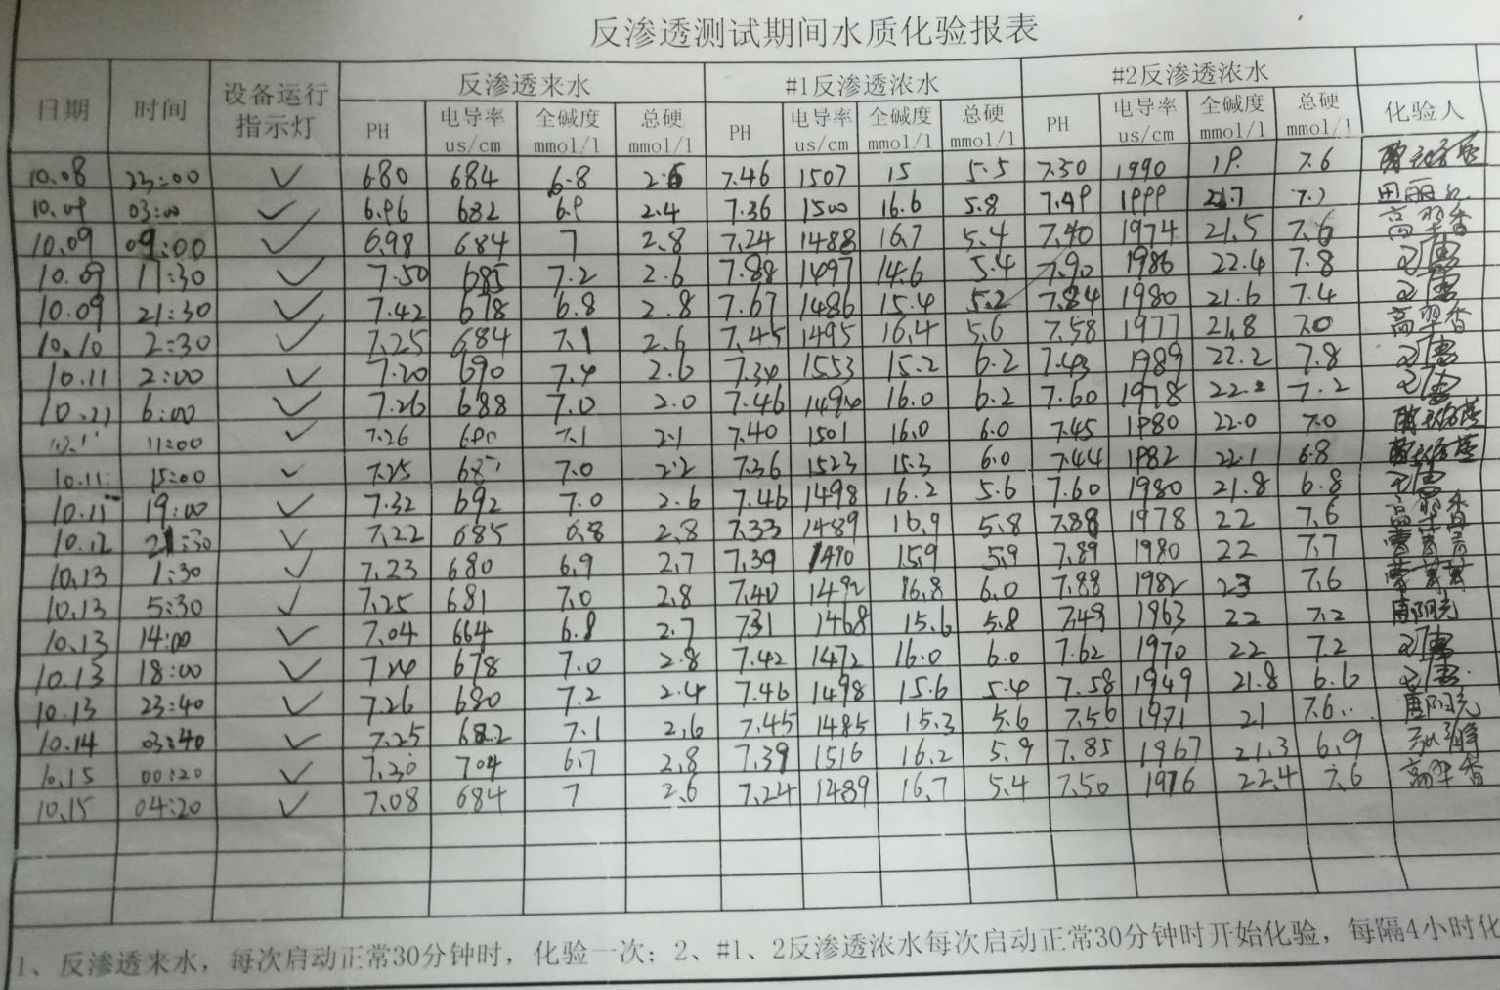 反渗透测试期间水质化验报表
日期 时间 设备运行指示灯 反渗透来水 #1反渗透浓水 #2反渗透浓水 化验人
PH 电导率 us/cm 全碱度 mmol/l 总硬 mmol/l PH 电导率 us/cm 全碱度 mmol/l 总硬 mmol/l PH 电导率 us/cm 全碱度 mmol/l 总硬 mmol/l
10.08 23:00 ✓ 6.80 684 6.8 2.6 7.46 1507 15 5.5 7.50 1990 19. 7.6
10.09 03:00 ✓ 6.96 682 6.9 2.4 7.36 1500 16.6 5.8 7.49 1999 21.7 7.7 田丽
10.09 09:00 ✓ 6.98 684 7 2.8 7.24 1488 16.7 5.4 7.40 1974 21.5 7.6 高翠香
10.09 17:30 ✓ 7.50 685 7.2 2.6 7.88 1497 14.6 5.4 7.90 1986 22.4 7.8
10.09 21:30 ✓ 7.42 678 6.8 2.8 7.67 1486 15.4 5.2 7.84 1980 21.6 7.4
10.10 2:30 ✓ 7.25 684 7.1 2.6 7.45 1495 16.4 5.6 7.58 1977 21.8 7.0 高翠香
10.11 2:00 ✓ 7.20 690 7.4 2.6 7.34 1553 15.2 6.2 7.43 1989 22.2 7.8
10.11 6:00 ✓ 7.26 688 7.0 2.0 7.46 1494 16.0 6.2 7.60 1978 22.2 7.2
11:00 ✓ 7.26 7.1 2.1 7.40 1501 16.0 6.0 7.45 1980 22.0 7.0
10.11 15:00 ✓ 7.25 7.0 2.2 7.36 1523 15.3 6.0 7.44 1982 22.1 6.8
10.11 19:00 ✓ 7.32 692 7.0 2.6 7.46 1498 16.2 5.6 7.60 1980 21.8 6.8
10.12 21:30 ✓ 7.22 685 6.8 2.8 7.33 1489 16.9 5.8 7.88 1978 22 7.6 高翠香
10.13 1:30 ✓ 7.23 680 6.9 2.7 7.39 1490 15.9 5.9 7.89 1980 22 7.7
10.13 5:30 ✓ 7.25 681 7.0 2.8 7.40 1492 16.8 6.0 7.88 1982 23 7.6
10.13 14:00 ✓ 7.04 664 6.8 2.7 7.31 1468 15.6 5.8 7.49 1963 22 7.2
10.13 18:00 ✓ 7.24 678 7.0 2.8 7.42 1472 16.0 6.0 7.62 1970 22 7.2
10.13 23:40 ✓ 7.26 680 7.2 2.4 7.46 1498 15.6 5.4 7.58 1949 21.8 6.6
10.14 03:40 ✓ 7.25 682 7.1 2.6 7.45 1485 15.3 5.6 7.56 1971 21 7.6
10.15 00:20 ✓ 7.30 704 6.7 2.8 7.39 1516 16.2 5.9 7.85 1967 21.3 6.9
10.15 04:20 ✓ 7.08 684 7 2.6 7.24 1489 16.7 5.4 7.50 1976 22.4 7.6 高翠香
1、反渗透来水，每次启动正常30分钟时，化验一次；2、#1、2反渗透浓水每次启动正常30分钟时开始化验，每隔4小时化